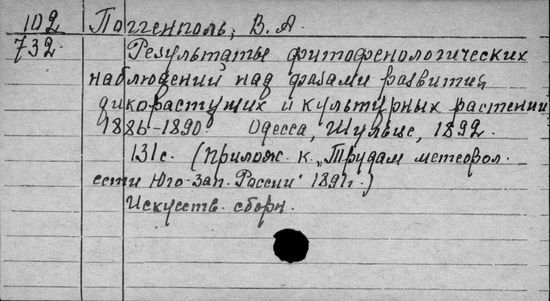 102 Поггенполь, В. А.
732 Результаты фитофенологических
наблюдений над фазами развития
дикорастущих и культурных растений
1886-1890 Одесса, Шульце, 1892.
131 с. (Прилож. к „Трудам метеорол.
сети Юго-Зап. России" 1891г.)
Искусств. сборн.